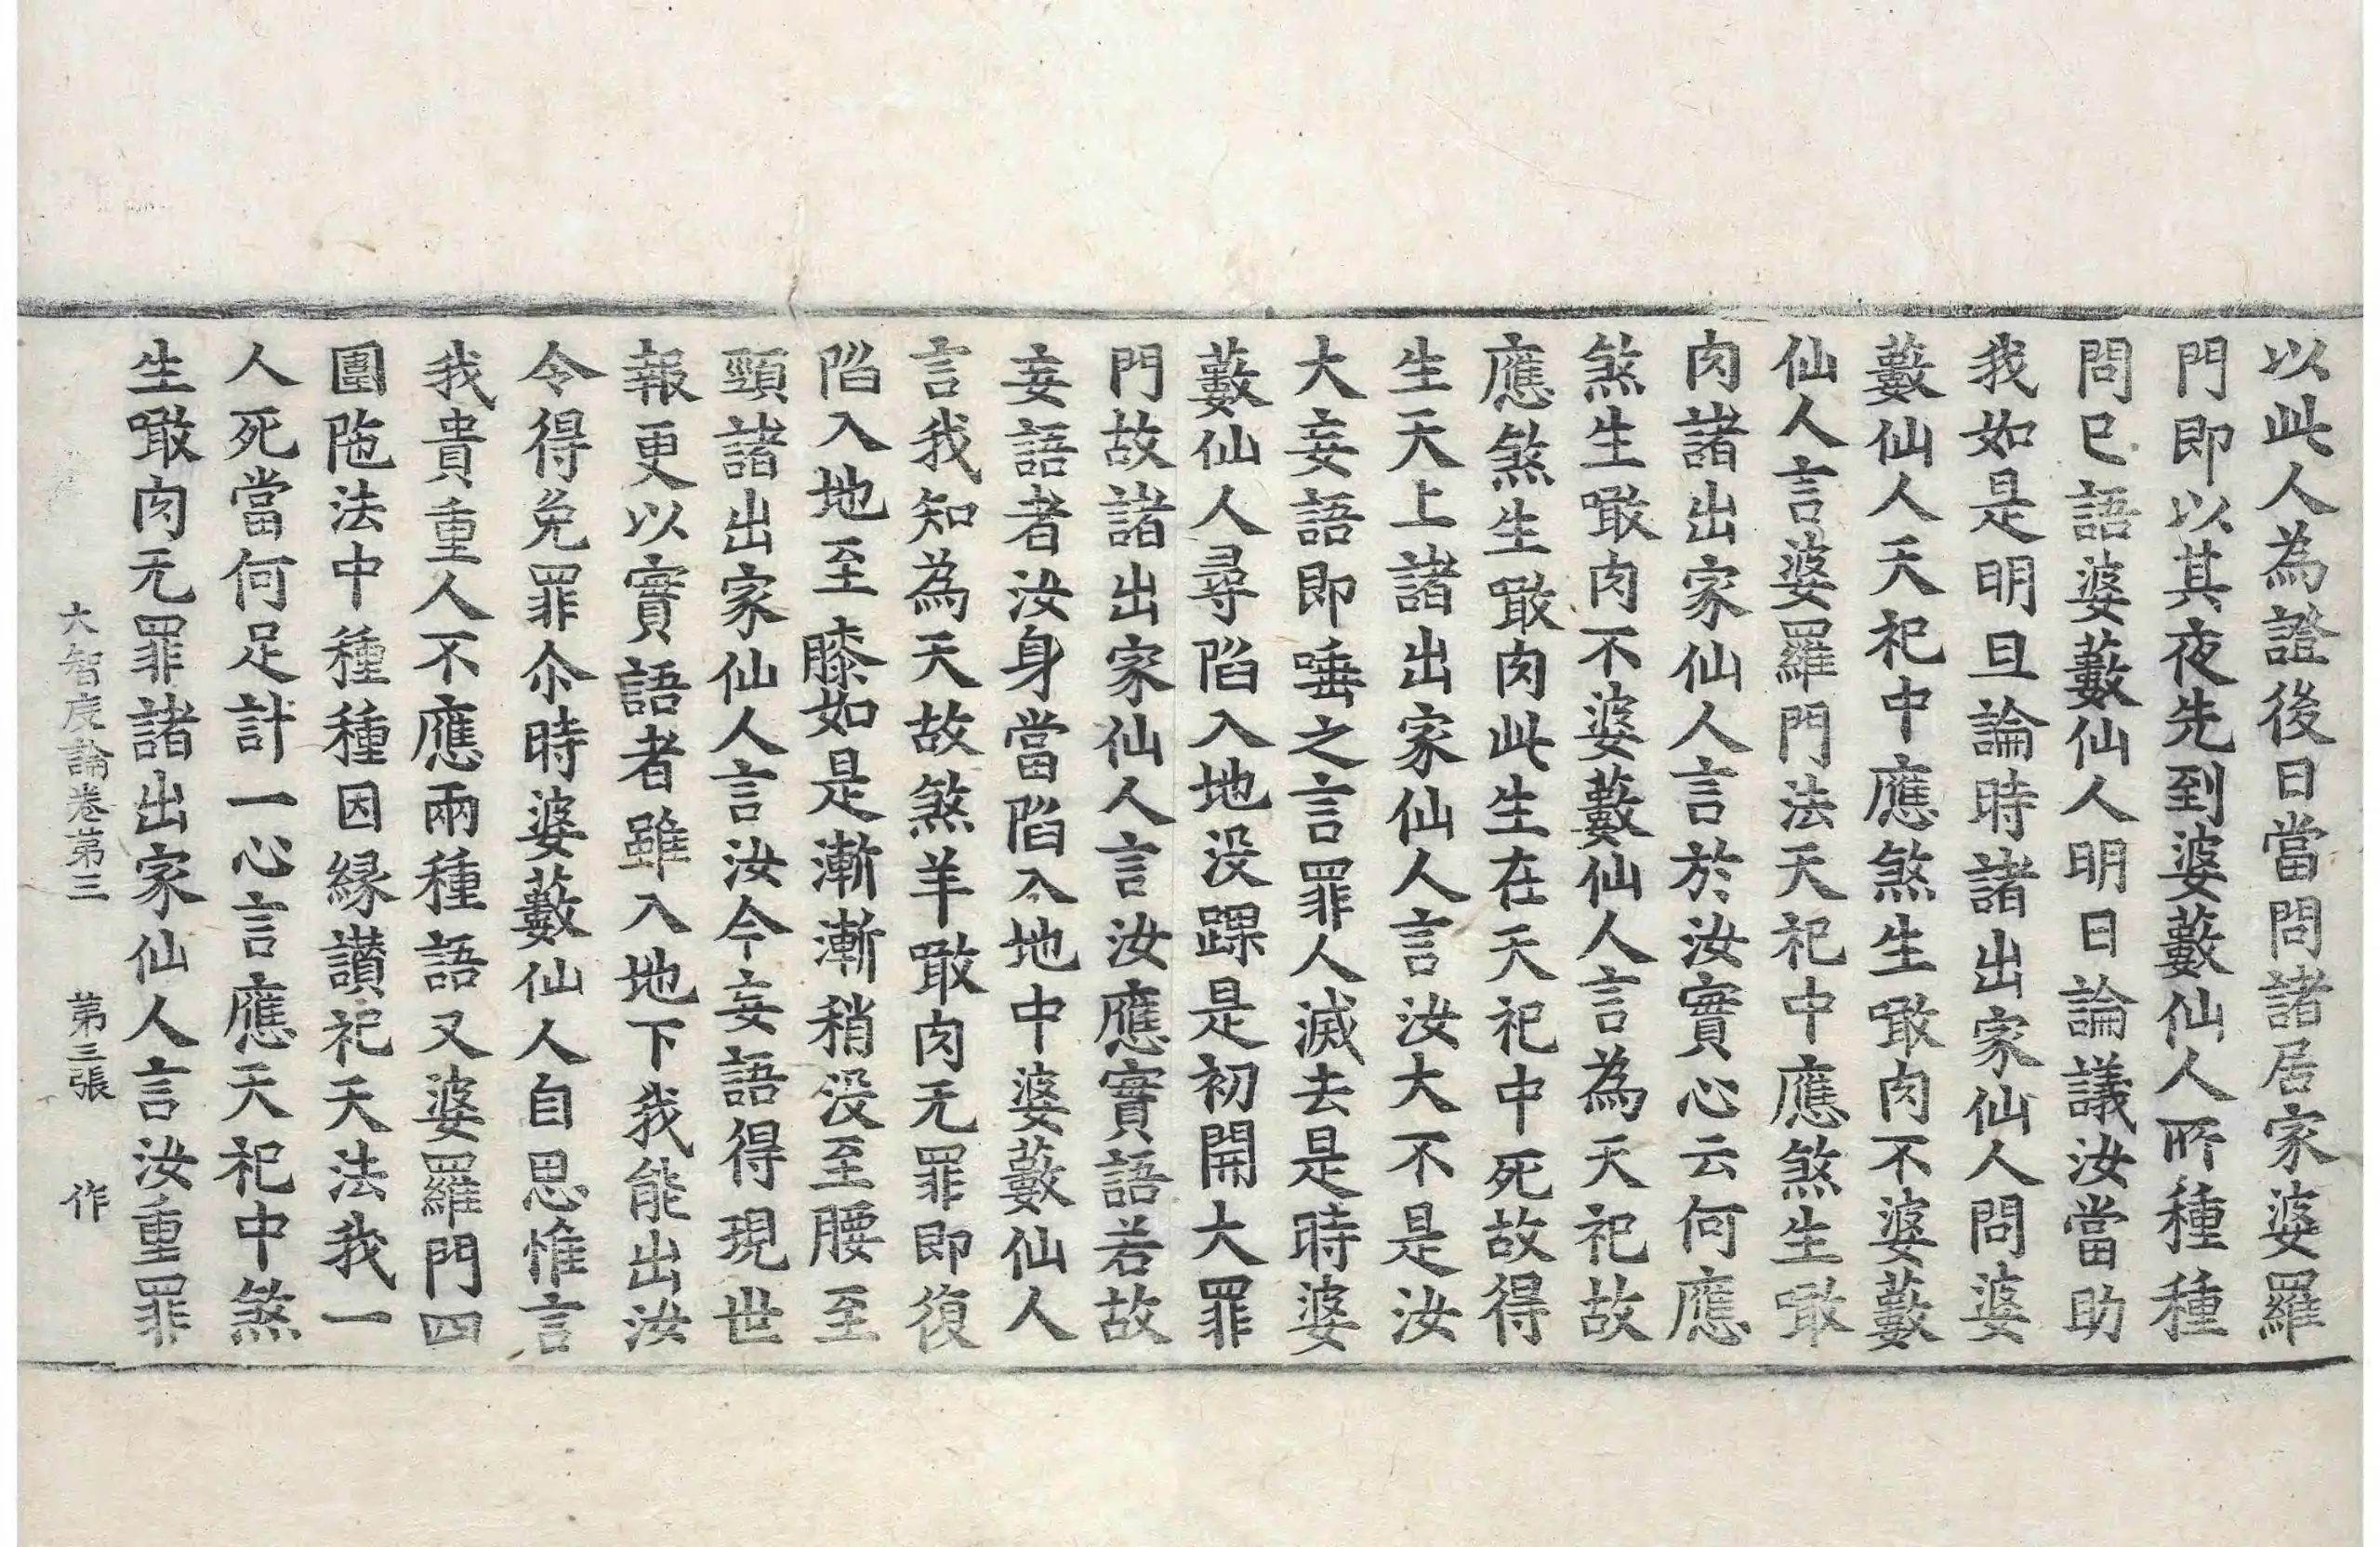 以此人為證後日當問諸居家婆羅
門即以其夜先到婆藪仙人所種種
問已語婆藪仙人明日論議汝當助
我如是明旦論時諸出家仙人問婆
藪仙人天祀中應煞生噉肉不婆藪
仙人言婆羅門法天祀中應煞生噉
肉諸出家仙人言於汝實心云何應
煞生噉肉不婆藪仙人言為天祀故
應煞生噉肉此生在天祀中死故得
生天上諸出家仙人言汝大不是汝
大妄語即唾之言罪人滅去是時婆
藪仙人尋陷入地没踝是初開大罪
門故諸出家仙人言汝應實語若故
妄語者汝身當陷入地中婆藪仙人
言我知為天故煞羊噉肉无罪即復
陷入地至膝如是漸漸稍没至腰至
頸諸出家仙人言汝今妄語得現世
報更以實語者雖入地下我能出汝
令得免罪尒時婆藪仙人自思惟言
我貴重人不應兩種語又婆羅門四
圍陁法中種種因緣讃祀天法我一
人死當何足計一心言應天祀中煞
生噉肉无罪諸出家仙人言汝重罪
大智度論卷第三　第三張　作